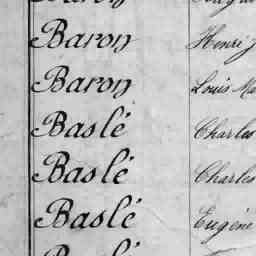 Baron Henri J
Baron Louis Ma
Baslé Charles
Baslé Charles
Baslé Eugène